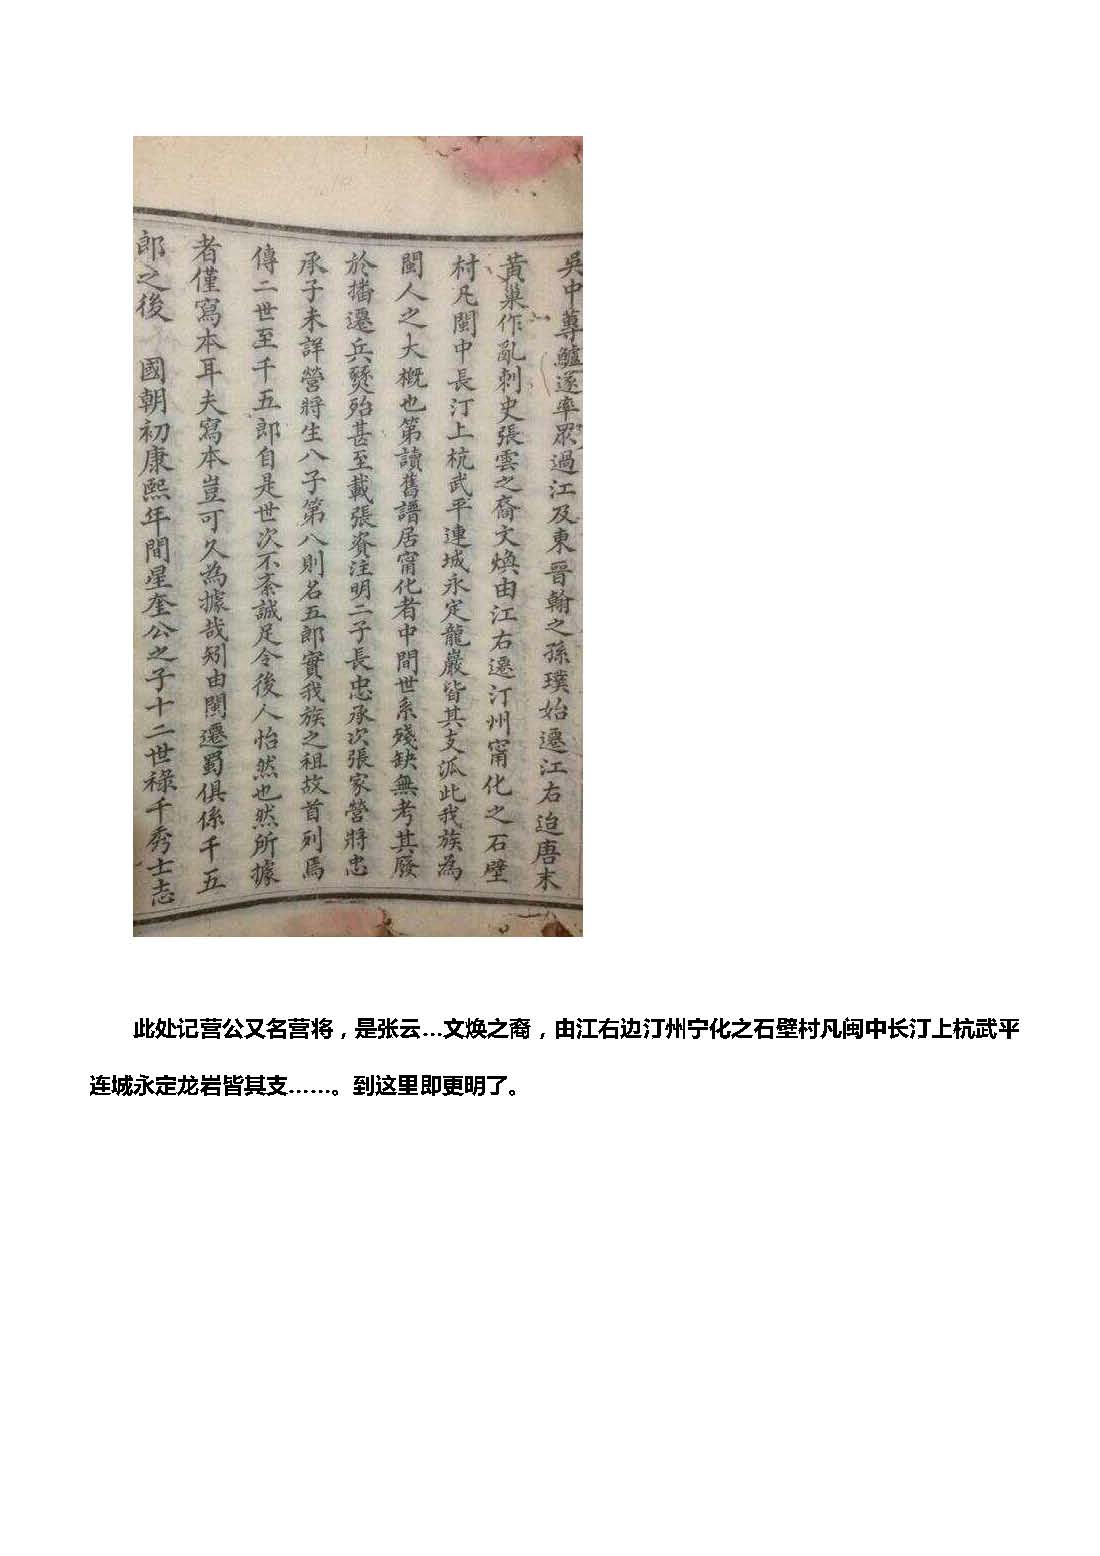 吳中蓴鱸遂率眾過江及東晉翰之孫璞始遷江右迨唐末
黃巢作亂刺史張雲之裔文煥由江右遷汀州甯化之石壁
村凡閩中長汀上杭武平連城永定龍巖皆其支派此我族為
閩人之大概也第讀舊譜居甯化者中間世系殘缺無考其廢
於播遷兵燹殆甚至載張資注明二子長忠承次張家營將忠
承子未詳營將生八子第八則名五郎實我族之祖故首列焉
傳二世至千五郎自是世次不紊誠足令後人怡然也然所據
者僅寫本耳夫寫本豈可久為據哉矧由閩遷蜀俱係千五
郎之後 國朝初康熙年間星奎公之子十二世祿千秀士志
此处记营公又名营将，是张云…文焕之裔，由江右边汀州宁化之石壁村凡闽中长汀上杭武平
连城永定龙岩皆其支……。到这里即更明了。